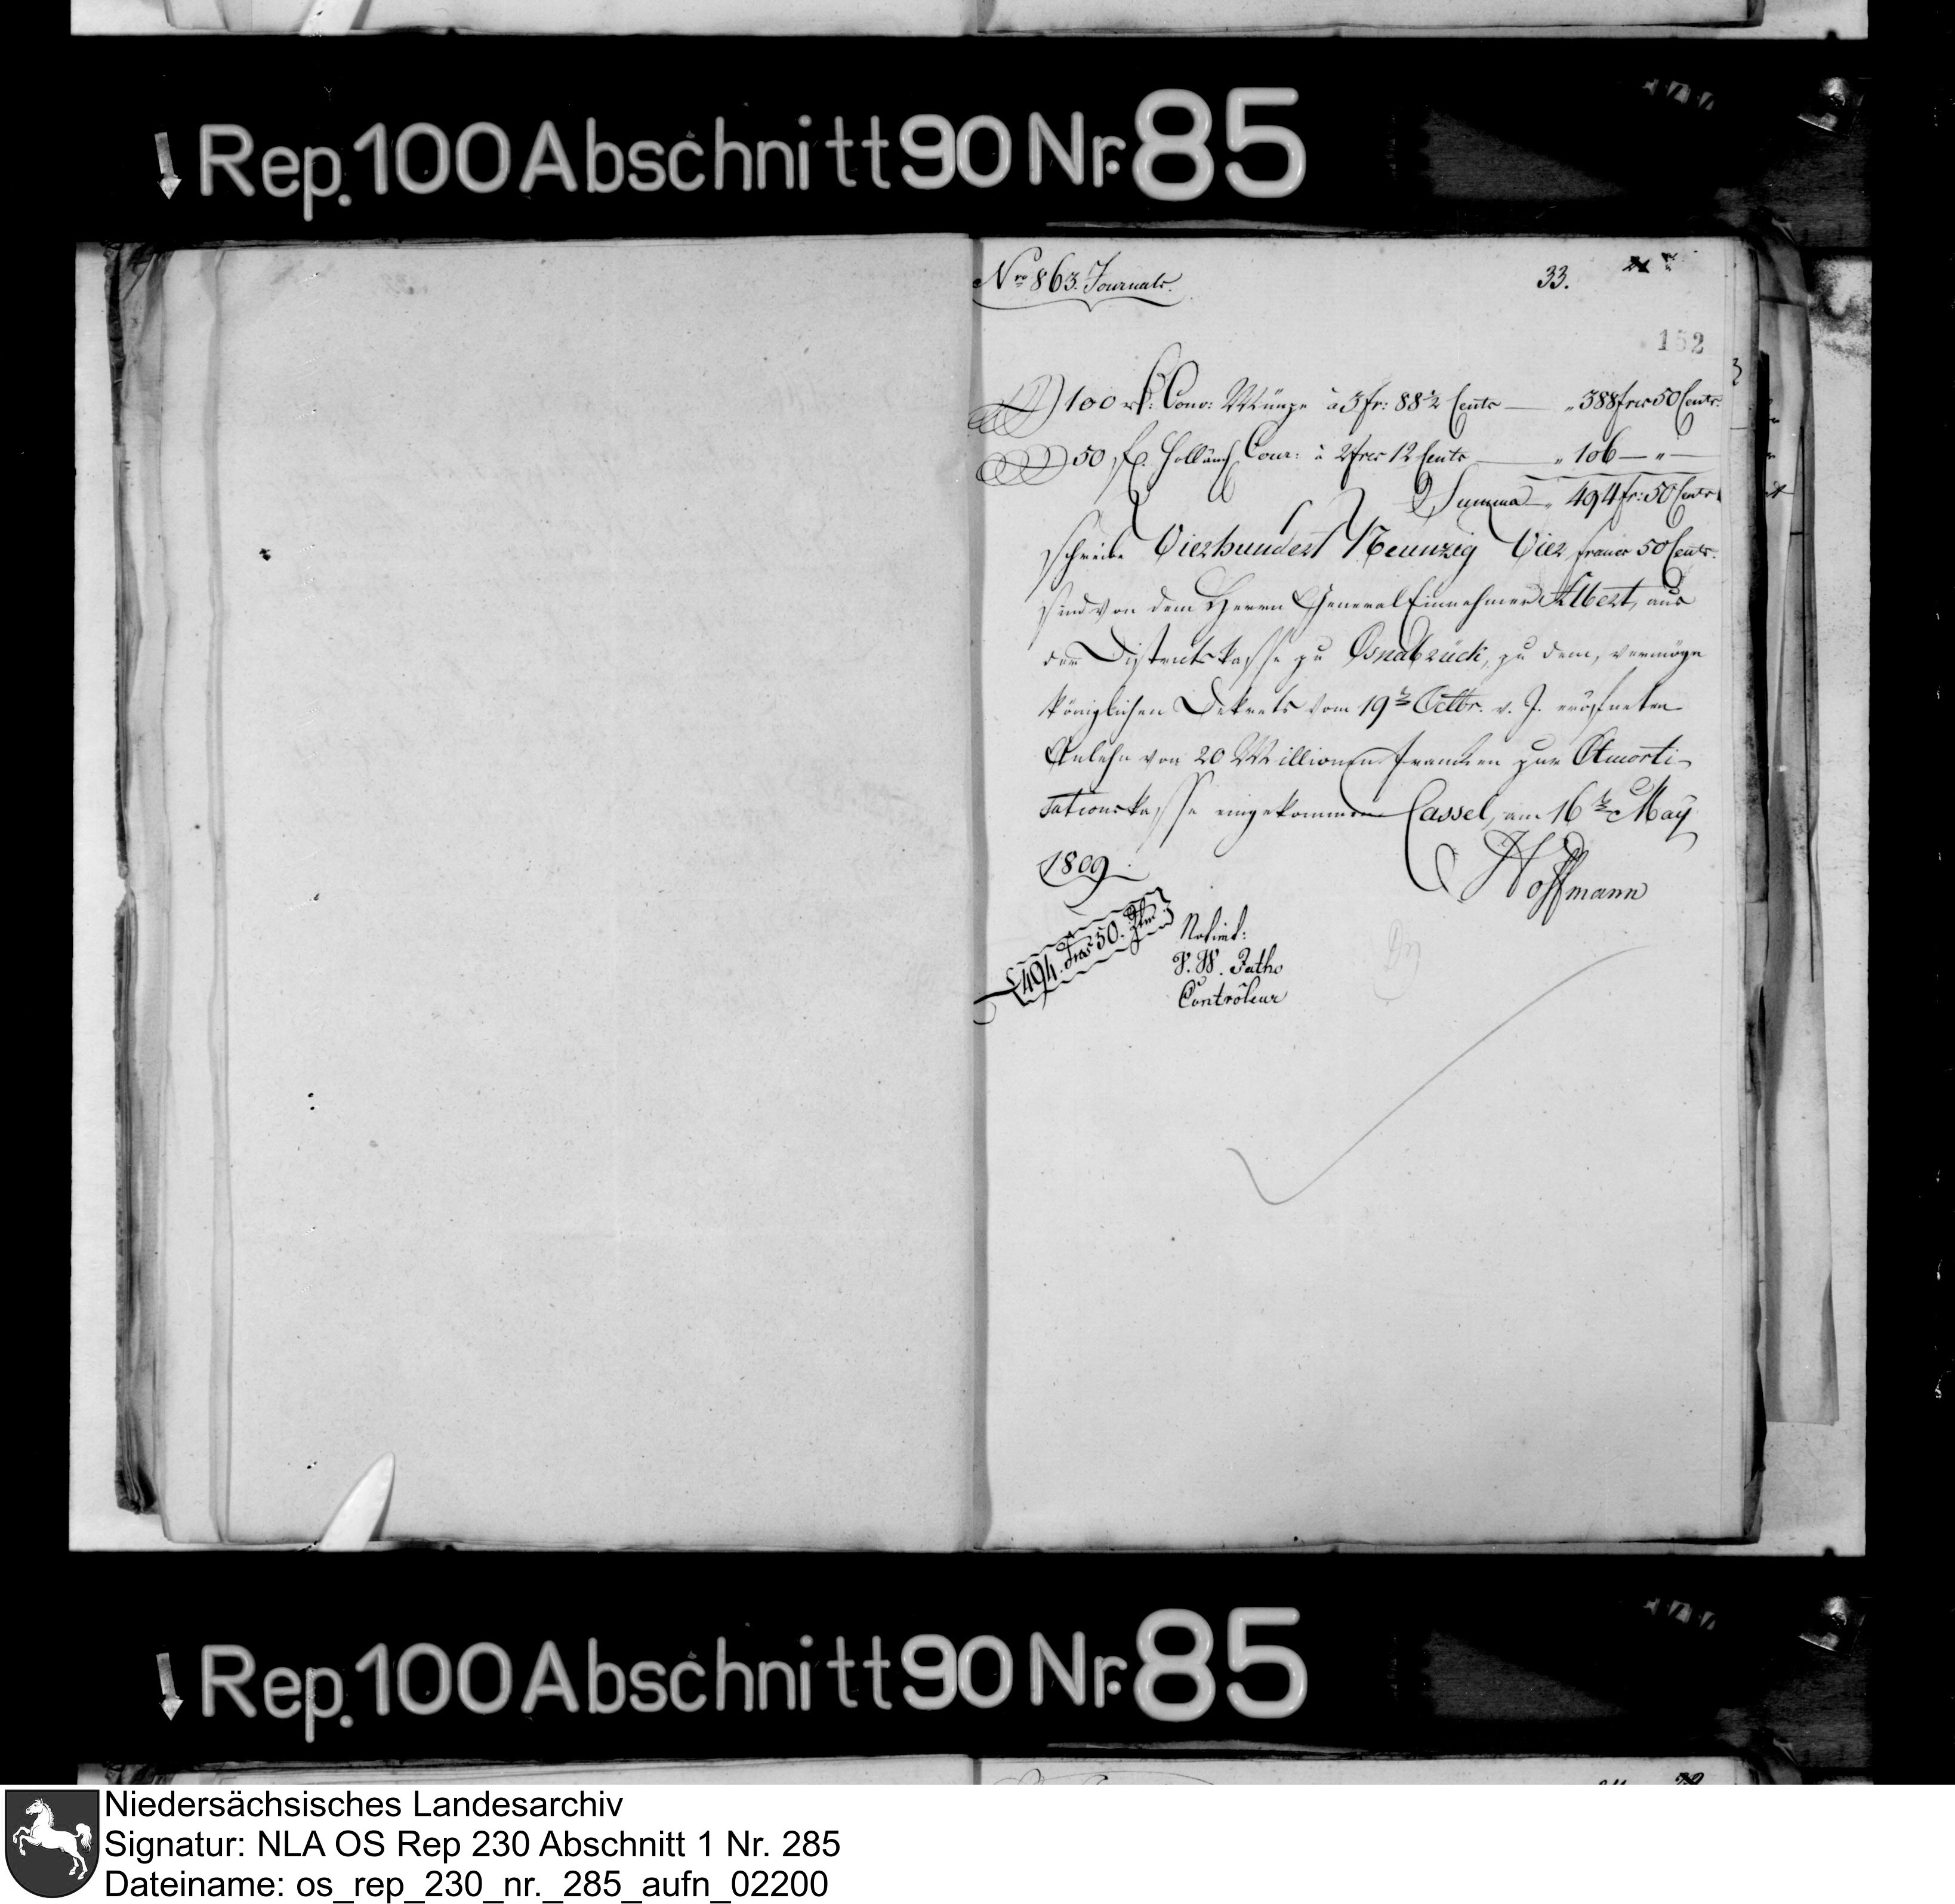 Rep. 100 Abschnitt 90 Nr. 85
Nro 863. Journals.
33.
152
100 rt: Conv: Münze à 3 fr: 88½ Cents — „ 388 frcs 50 Cents:
50 fl. Holländ. Cour: à 2 frcs 12 Cents — „ 106 — „ —
Summa — „ 494 fr: 50 Cents
schreibe Vierhundert Neunzig Vier francs 50 Cents.
sind von dem Herrn General Einnehmer Albert, aus
der Districtskasse zu Osnabrück, zu dem, vermöge
königlichen Dekrets vom 19ten Octbr. v. J. eröfneten
Anlehn von 20 Millionen Franken zur Amorti-
sationskasse eingekommen Cassel, am 16ten May
1809.
Hoffmann
494. Frcs 50.
Notirt:
Fatho
Contrôleur
Rep. 100 Abschnitt 90 Nr. 85
Niedersächsisches Landesarchiv
Signatur: NLA OS Rep 230 Abschnitt 1 Nr. 285
Dateiname: os_rep_230_nr._285_aufn_02200